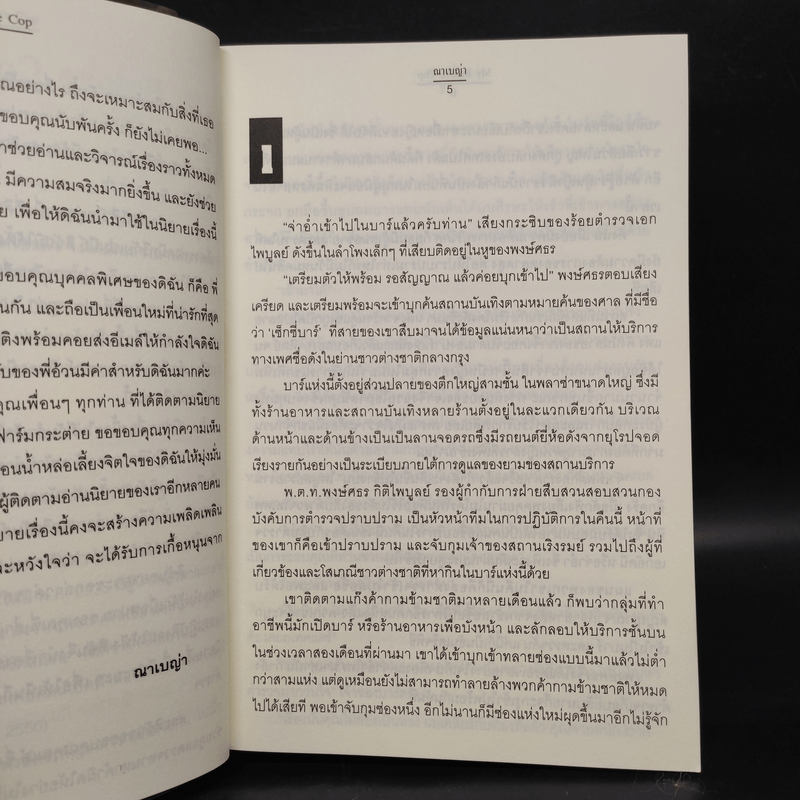 Cop
ณอย่างไร ถึงจะเหมาะสมกับสิ่งที่เธอ
ขอบคุณนับพันครั้ง ก็ยังไม่เคยพอ...
าช่วยอ่านและวิจารณ์เรื่องราวทั้งหมด
มีความสมจริงมากยิ่งขึ้น และยังช่วย
เพื่อให้ดิฉันนำมาใช้ในนิยายเรื่องนี้
ขอบคุณบุคคลพิเศษของดิฉัน ก็คือ พี่
นกัน และถือเป็นเพื่อนใหม่ที่น่ารักที่สุด
ติงพร้อมคอยส่งอีเมล์ให้กำลังใจดิฉัน
ับของพี่อ้วนมีค่าสำหรับดิฉันมากค่ะ
คุณเพื่อนๆ ทุกท่าน ที่ได้ติดตามนิยาย
ฟาร์มกระต่าย ขอขอบคุณทุกความเห็น
อนน้ำหล่อเลี้ยงจิตใจของดิฉันให้มุ่งมั่น
ผู้ติดตามอ่านนิยายของเราอีกหลายคน
ยายเรื่องนี้คงจะสร้างความเพลิดเพลิน
ะหวังใจว่า จะได้รับการเกื้อหนุนจาก
ณาเบญ่า
ณาเบญ่า
5
1
“จ่าอ่ำเข้าไปในบาร์แล้วครับท่าน” เสียงกระซิบของร้อยตำรวจเอก
ไพบูลย์ ดังขึ้นในลำโพงเล็กๆ ที่เสียบติดอยู่ในหูของพงษ์ศธร
“เตรียมตัวให้พร้อม รอสัญญาณ แล้วค่อยบุกเข้าไป” พงษ์ศธรตอบเสียง
เครียด และเตรียมพร้อมจะเข้าบุกค้นสถานบันเทิงตามหมายค้นของศาล ที่มีชื่อ
ว่า ‘เซ็กซี่บาร์’ ที่สายของเขาสืบมาจนได้ข้อมูลแน่นหนาว่าเป็นสถานให้บริการ
ทางเพศชื่อดังในย่านชาวต่างชาติกลางกรุง
บาร์แห่งนี้ตั้งอยู่ส่วนปลายของตึกใหญ่สามชั้น ในพลาซ่าขนาดใหญ่ ซึ่งมี
ทั้งร้านอาหารและสถานบันเทิงหลายร้านตั้งอยู่ในละแวกเดียวกัน บริเวณ
ด้านหน้าและด้านข้างเป็นเป็นลานจอดรถซึ่งมีรถยนต์ยี่ห้อดังจากยุโรปจอด
เรียงรายกันอย่างเป็นระเบียบภายใต้การดูแลของยามของสถานบริการ
พ.ต.ท.พงษ์ศธร กิติไพบูลย์ รองผู้กำกับการฝ่ายสืบสวนสอบสวนกอง
บังคับการตำรวจปราบปราม เป็นหัวหน้าทีมในการปฏิบัติการในคืนนี้ หน้าที่
ของเขาก็คือเข้าปราบปราม และจับกุมเจ้าของสถานเริงรมย์ รวมไปถึงผู้ที่
เกี่ยวข้องและโสเภณีชาวต่างชาติที่หากินในบาร์แห่งนี้ด้วย
เขาติดตามแก๊งค้ากามข้ามชาติมาหลายเดือนแล้ว ก็พบว่ากลุ่มที่ทำ
อาชีพนี้มักเปิดบาร์ หรือร้านอาหารเพื่อบังหน้า และลักลอบให้บริการชั้นบน
ในช่วงเวลาสองเดือนที่ผ่านมา เขาได้เข้าบุกเข้าทลายซ่องแบบนี้มาแล้วไม่ต่ำ
กว่าสามแห่ง แต่ดูเหมือนยังไม่สามารถทำลายล้างพวกค้ากามข้ามชาติให้หมด
ไปได้เสียที พอเข้าจับกุมซ่องหนึ่ง อีกไม่นานก็มีซ่องแห่งใหม่ผุดขึ้นมาอีกไม่รู้จัก